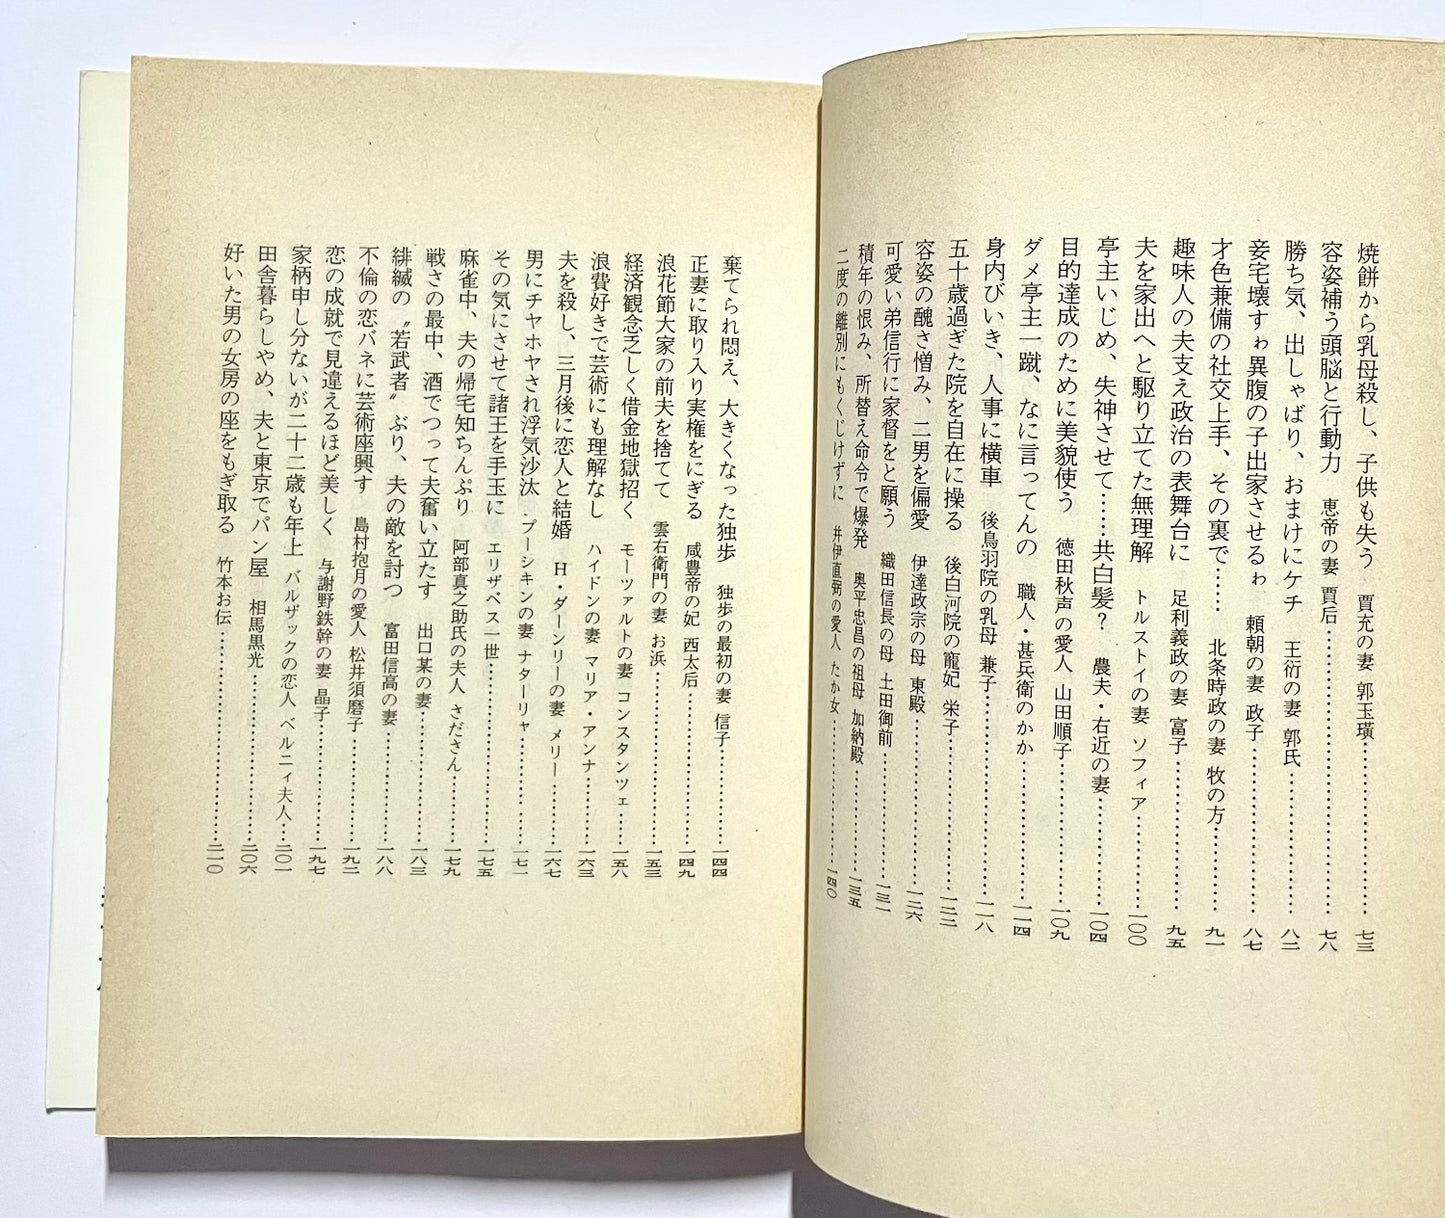 焼餅から乳母殺し、子供も失う 賈充の妻 郭玉璜……七三
容姿補う頭脳と行動力 恵帝の妻 賈后……七八
勝ち気、出しゃばり、おまけにケチ 王衍の妻 郭氏……八二
妾宅壊すゎ異腹の子出家させるゎ 頼朝の妻 政子……八七
才色兼備の社交上手、その裏で…… 北条時政の妻 牧の方……九一
趣味人の夫支え政治の表舞台に 足利義政の妻 富子……九五
夫を家出へと駆り立てた無理解 トルストイの妻 ソフィア……一〇〇
亭主いじめ、失神させて……共白髪? 農夫・右近の妻……一〇四
目的達成のために美貌使う 徳田秋声の愛人 山田順子……一〇九
ダメ亭主一蹴、なに言ってんの 職人・甚兵衛のかか……一一四
身内びいき、人事に横車 後鳥羽院の乳母 兼子……一一八
五十歳過ぎた院を自在に操る 後白河院の寵妃 栄子……一二二
容姿の醜さ憎み、二男を偏愛 伊達政宗の母 東殿……一二六
可愛い弟信行に家督をと願う 織田信長の母 土田御前……一三一
積年の恨み、所替え命令で爆発 奥平忠昌の祖母 加納殿……一三五
二度の離別にもくじけずに 井伊直弼の愛人 たか女……一四〇
棄てられ悶え、大きくなった独歩 独歩の最初の妻 信子……一四四
正妻に取り入り実権をにぎる 咸豊帝の妃 西太后……一四九
浪花節大家の前夫を捨てて 雲右衛門の妻 お浜……一五三
経済観念乏しく借金地獄招く モーツァルトの妻 コンスタンツェ……一五八
浪費好きで芸術にも理解なし ハイドンの妻 マリア・アンナ……一六三
夫を殺し、三月後に恋人と結婚 H・ダーンリーの妻 メリー……一六七
男にチヤホヤされ浮気沙汰 プーシキンの妻 ナターリャ……一七一
その気にさせて諸王を手玉に エリザベス一世……一七五
麻雀中、夫の帰宅知ちんぷり 阿部真之助氏の夫人 さださん……一七九
戦さの最中、酒でつって夫奮い立たす 出口某の妻……一八三
緋縅の〝若武者〟ぶり、夫の敵を討つ 富田信高の妻……一八八
不倫の恋バネに芸術座興す 島村抱月の愛人 松井須磨子……一九二
恋の成就で見違えるほど美しく 与謝野鉄幹の妻 晶子……一九七
家柄申し分ないが二十二歳も年上 バルザックの恋人 ベルニィ夫人……二〇一
田舎暮らしやめ、夫と東京でパン屋 相馬黒光……二〇六
好いた男の女房の座をもぎ取る 竹本お伝……二一〇